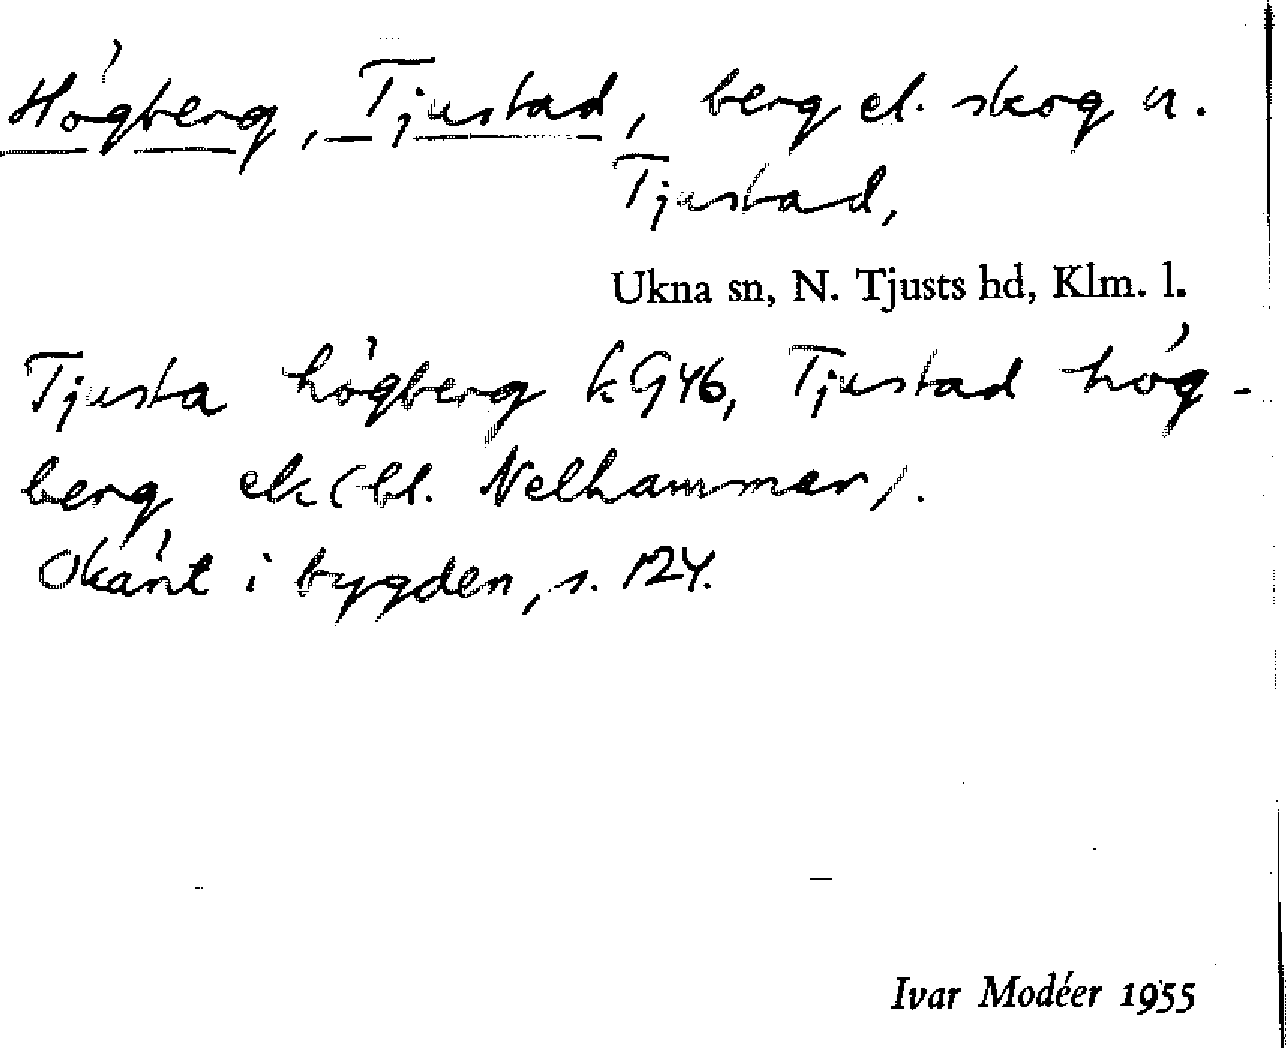 Högberg, Tjustad, berg el. skog u.
Tjustad,
Ukna sn, N. Tjusts hd, Klm. l.
Tjusta högberg k G46, Tjustad hög-
berg ek (bl. Nelhammar).
Okänt i bygden, s. 124.
Ivar Modéer 1955